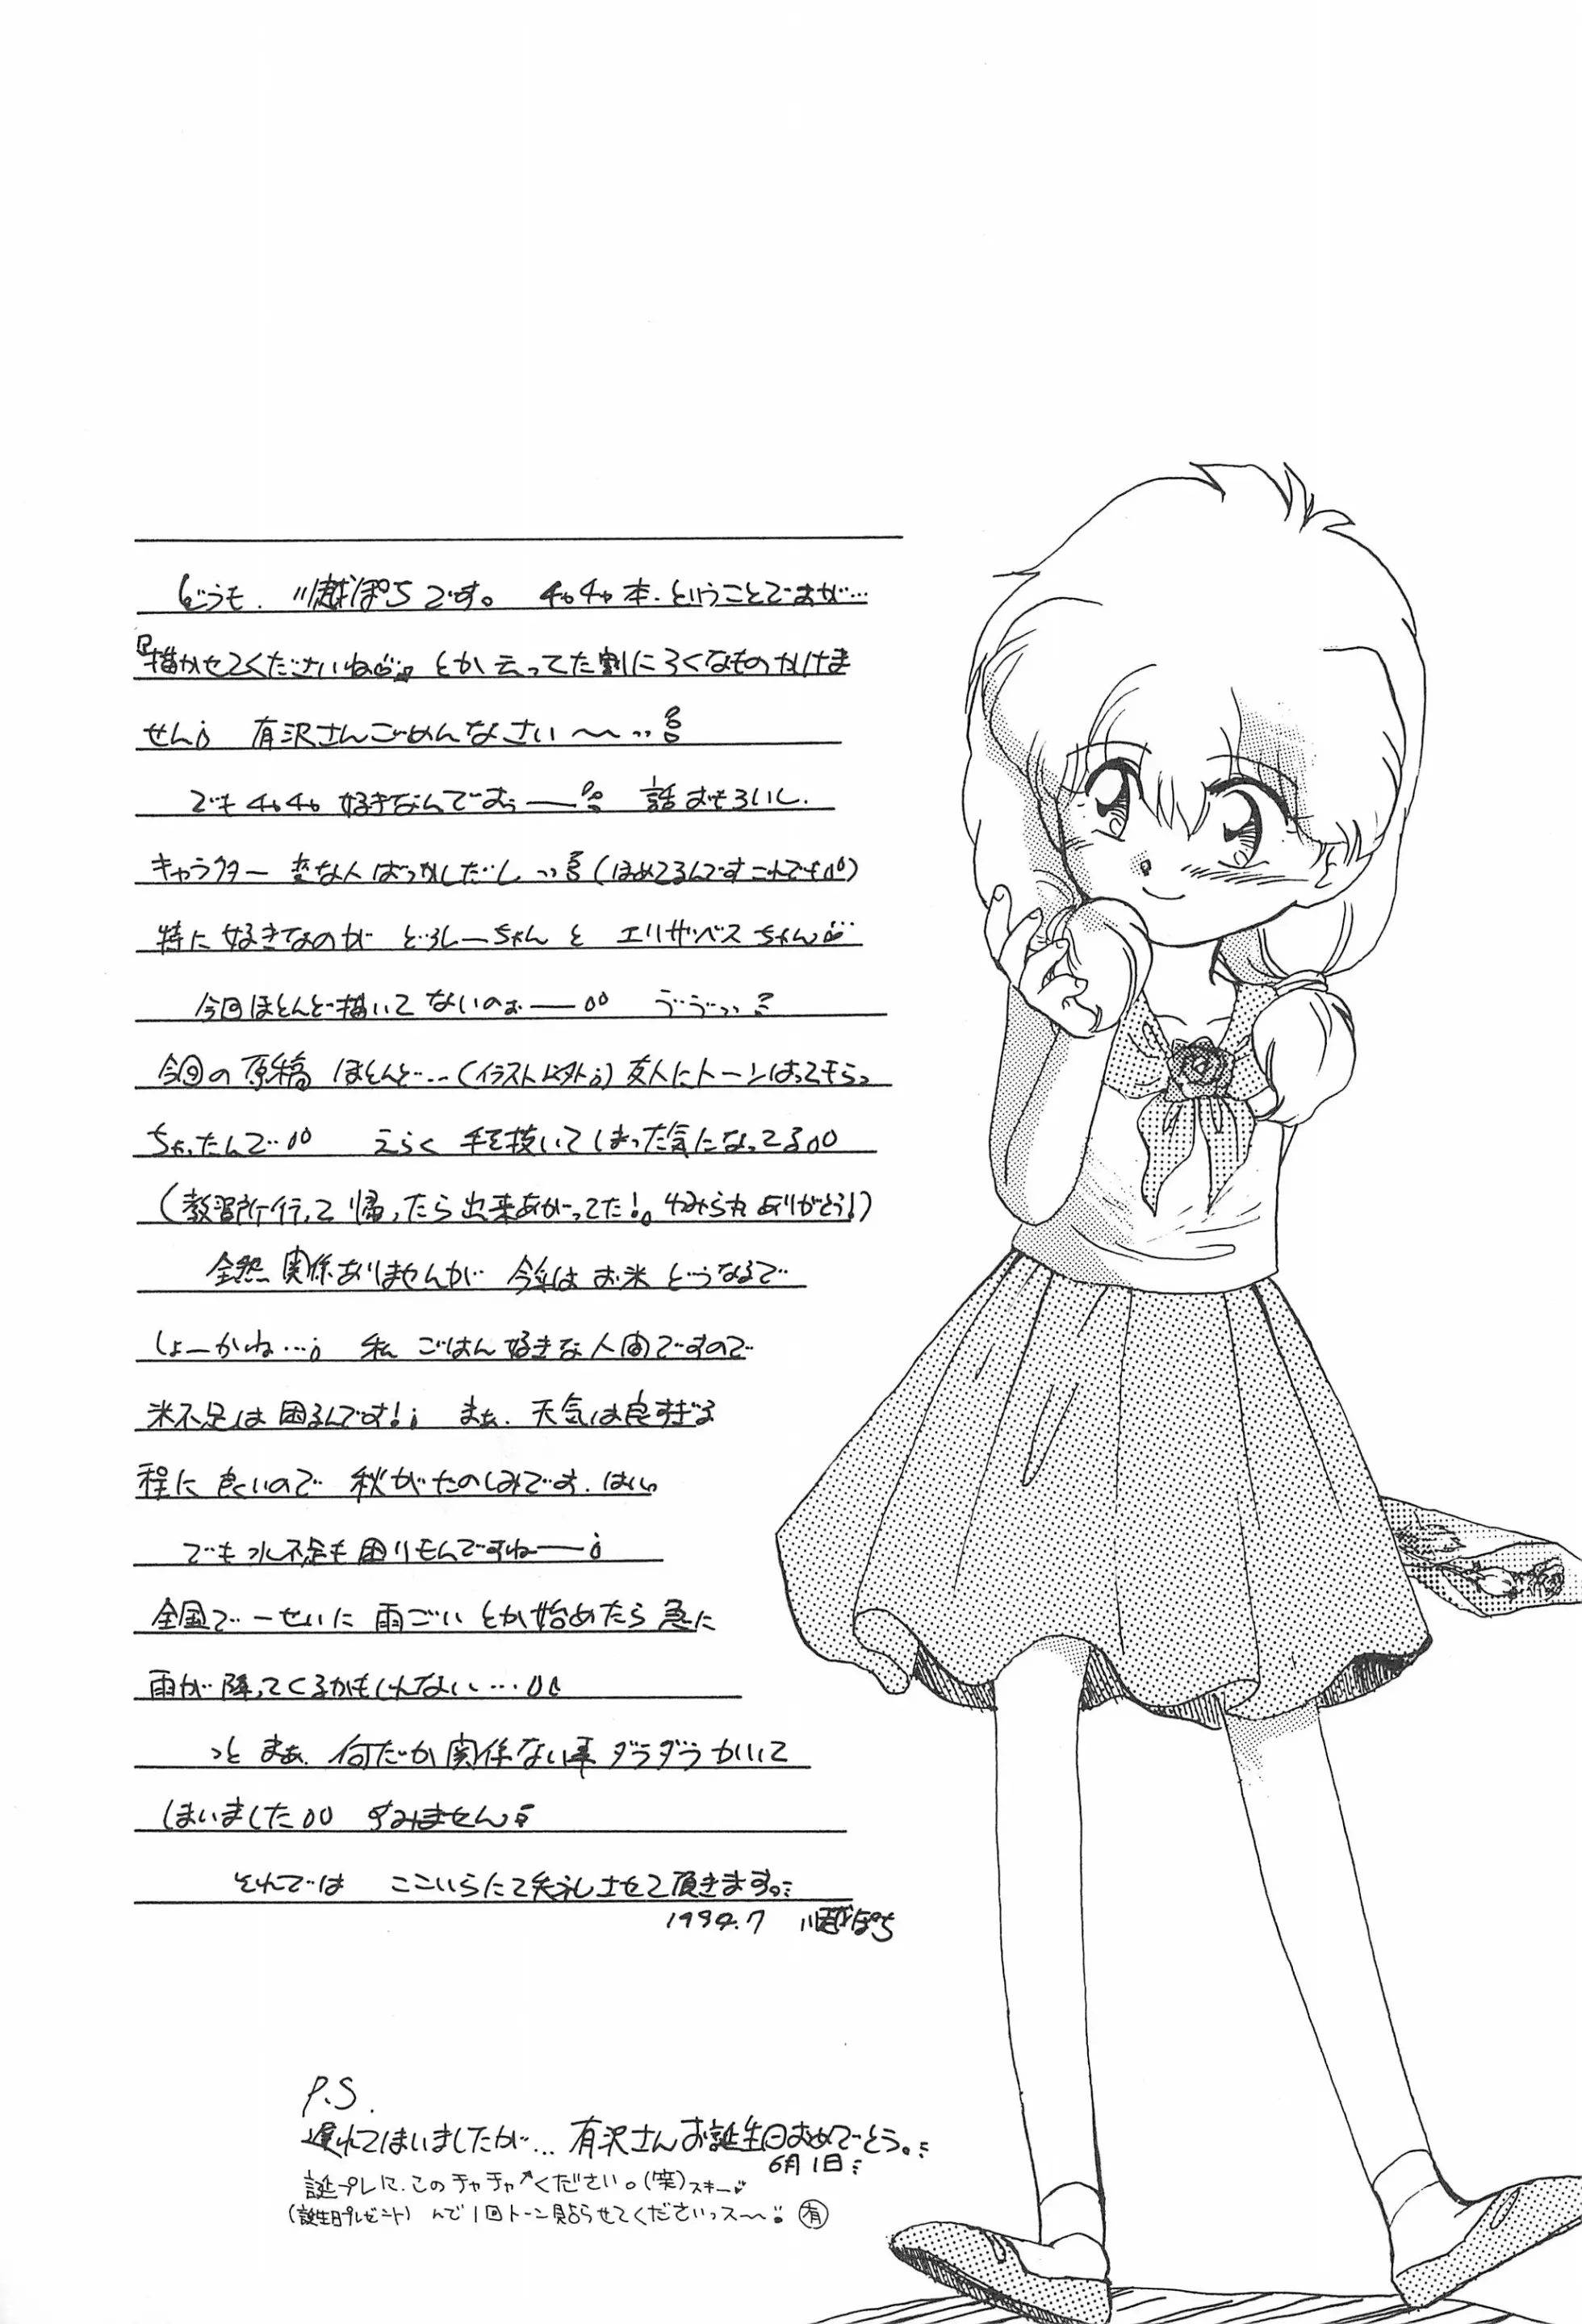 どうも. 川越ぽちです。 チャチャ本. ということですが…
『描かせてくださいね♡』とか云ってた割にろくなものかけま
せん 有沢さんごめんなさい〜っっ
でもチャチャ好きなんですぅ―― 話おもろいし.
キャラクター変な人ばっかしだしっっ(ほめてるんですこれでも)
特に好きなのが どろしーちゃん と エリザベスちゃん♡
今回ほとんど描いてないのぉ―― う゛う゛っっ
今回の原稿 ほとんど…(イラスト以外)友人にトーンはってもらっ
ちゃったんで えらく 手を抜いてしまった気になってる
(教習所行って 帰ったら出来あがってた!。 ありがとう!)
全然 関係ありませんが 今年は お米 どうなるで
しょーかね… 私 ごはん好きな人間ですので
米不足は困るんです! まぁ. 天気は良すぎる
程に 良いので 秋がたのしみです. はい
でも水不足も困りもんですねー――
全国で一せいに 雨ごい とか始めたら急に
雨が降ってくるかもしんない…
っと まぁ. 何だか関係ない事ダラダラかいて
しまいました すみません
それでは ここいらにて失礼させて頂きます。
1994.7 川越ぽち
P.S.
遅れてしまいましたが… 有沢さんお誕生日おめでとう。
6月1日
誕プレに、このチャチャ↗ください。(笑)スキー♡
(誕生日プレゼント) んで1回トーン貼らせてくださいっス〜 ㊒